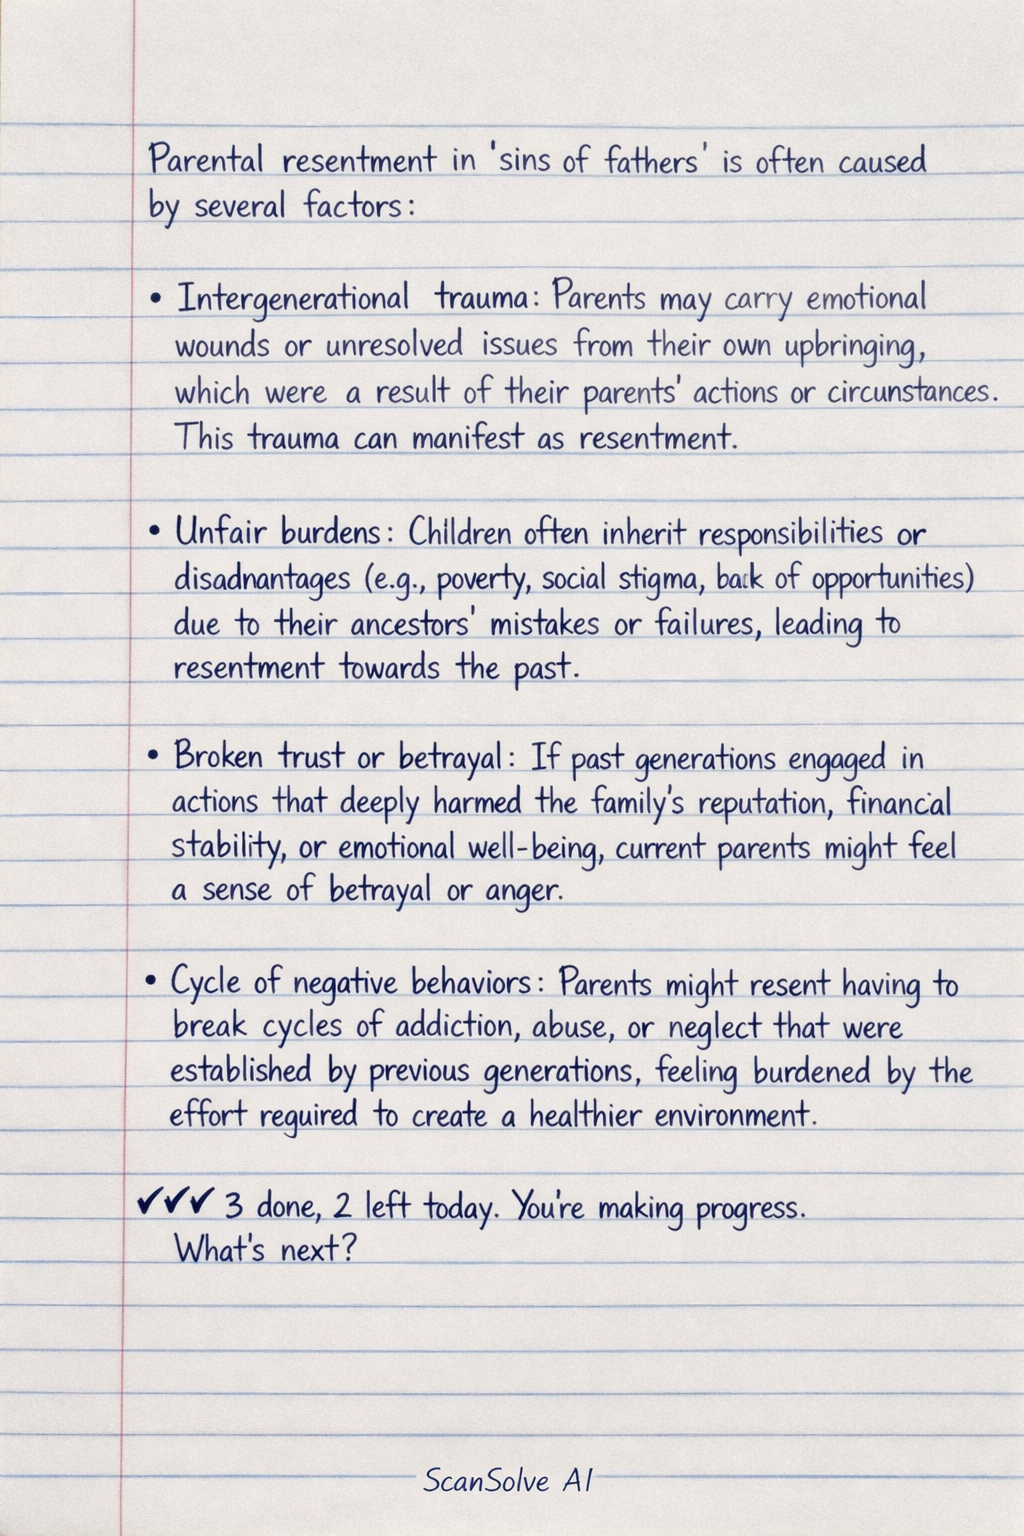 Parental resentment in 'sins of fathers' is often caused
by several factors:
• Intergenerational trauma: Parents may carry emotional
wounds or unresolved issues from their own upbringing,
which were a result of their parents' actions or circunstances.
This trauma can manifest as resentment.
• Unfair burdens: Children often inherit responsibilities or
disadnantages (e.g., poverty, social stigma, back of opportunities)
due to their ancestors' mistakes or failures, leading to
resentment towards the past.
• Broken trust or betrayal: If past generations engaged in
actions that deeply harmed the family's reputation, financial
stability, or emotional well-being, current parents might feel
a sense of betrayal or anger.
• Cycle of negative behaviors: Parents might resent having to
break cycles of addiction, abuse, or neglect that were
established by previous generations, feeling burdened by the
effort required to create a healthier environment.
✓✓✓ 3 done, 2 left today. You're making progress.
What's next?
ScanSolve AI